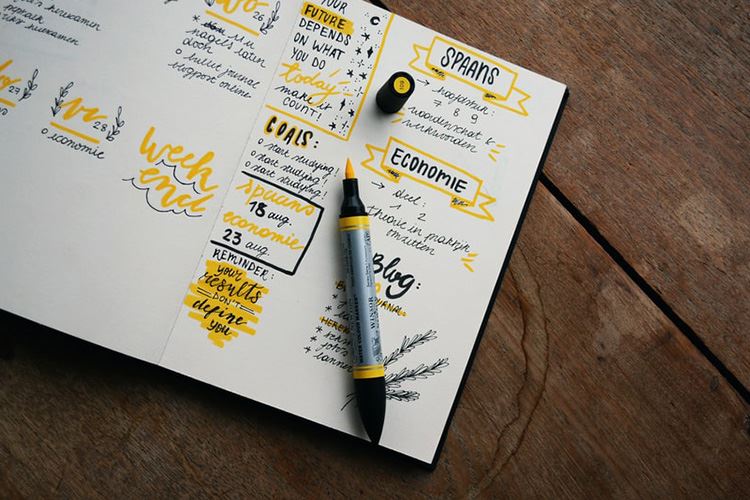 herexamen
26
nagels laten
doen
o bullet journal
blogpost online
27
vr 28
o economie
week
end
YOUR
FUTURE
DEPENDS
ON WHAT
YOU DO
today!
make it
COUNT!
GOALS:
o start studying!
o start studying!
o start studying!
spaans
18 aug.
economie
23 aug.
REMINDER:
your
results
DON'T
define
you
SPAANS
→ hoofdstuk:
7 8 9
woordenschat &
werkwoorden
ECONOMIE
→ deel:
1 2
theorie in praktijk
omzetten
Blog:
WATER COLOUR MARKER
WINSOR